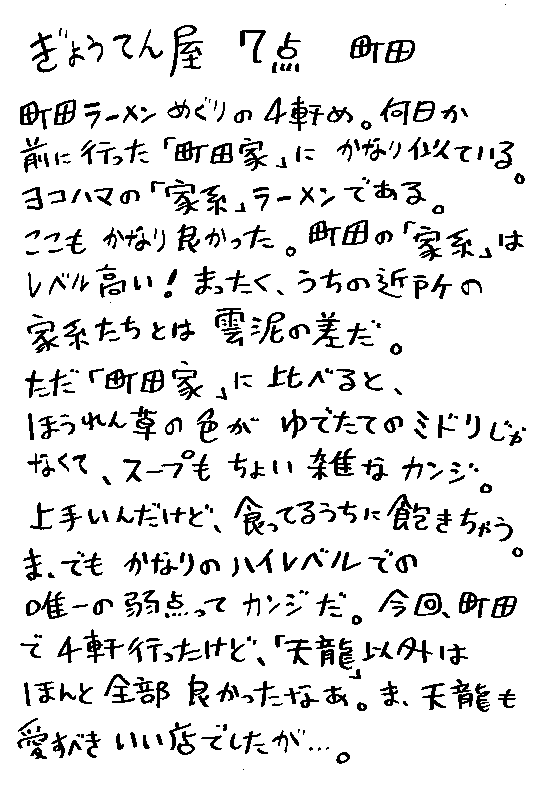 ぎょうてん屋 7点 町田
町田ラーメンめぐりの4軒め。何日か
前に行った「町田家」にかなり似ている。
ヨコハマの「家系」ラーメンである。
ここもかなり良かった。町田の「家系」は
レベル高い!まったく、うちの近所の
家系たちとは雲泥の差だ。
ただ「町田家」に比べると、
ほうれん草の色がゆでたてのミドリじゃ
なくて、スープもちょい雑なカンジ。
上手いんだけど、食ってるうちに飽きちゃう。
ま、でもかなりのハイレベルでの
唯一の弱点ってカンジだ。今回、町田
で4軒行ったけど、「天龍」以外は
ほんと全部良かったなあ。ま、天龍も
愛すべきいい店でしたが…。